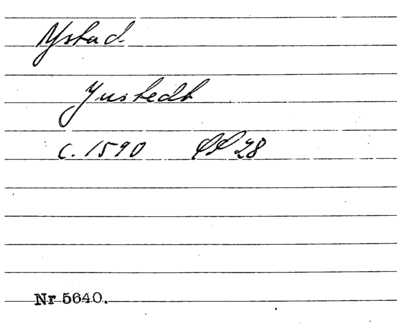 Ystad
Yustedt
c. 1590 PP 28
Nr 5640.